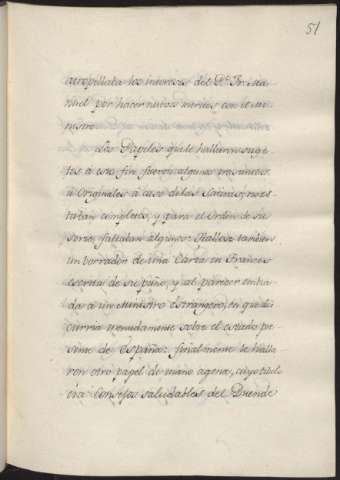 51
atropellava los intereses del P.e Fr. Ma
nuel por hacer nuevos meritos con el Mi
nistro.
Los Papeles que le hallaron suge
tos à este fin, fueron algunos
ù Originales à caso de las Satiras; no es
tavan completos, y para el Orden de su
serie, faltavan algunos: Hallose tambien
un borrador de una Carta en Frances
escrita de su puño, y al parecer embia
da à un Ministro Estrangero, en que dis
curria menudamente sobre el estado pre
sente de España: finalmente se halla
ron otro papel de mano agena, cuyo titulo
era: Consejos saludables del Duende